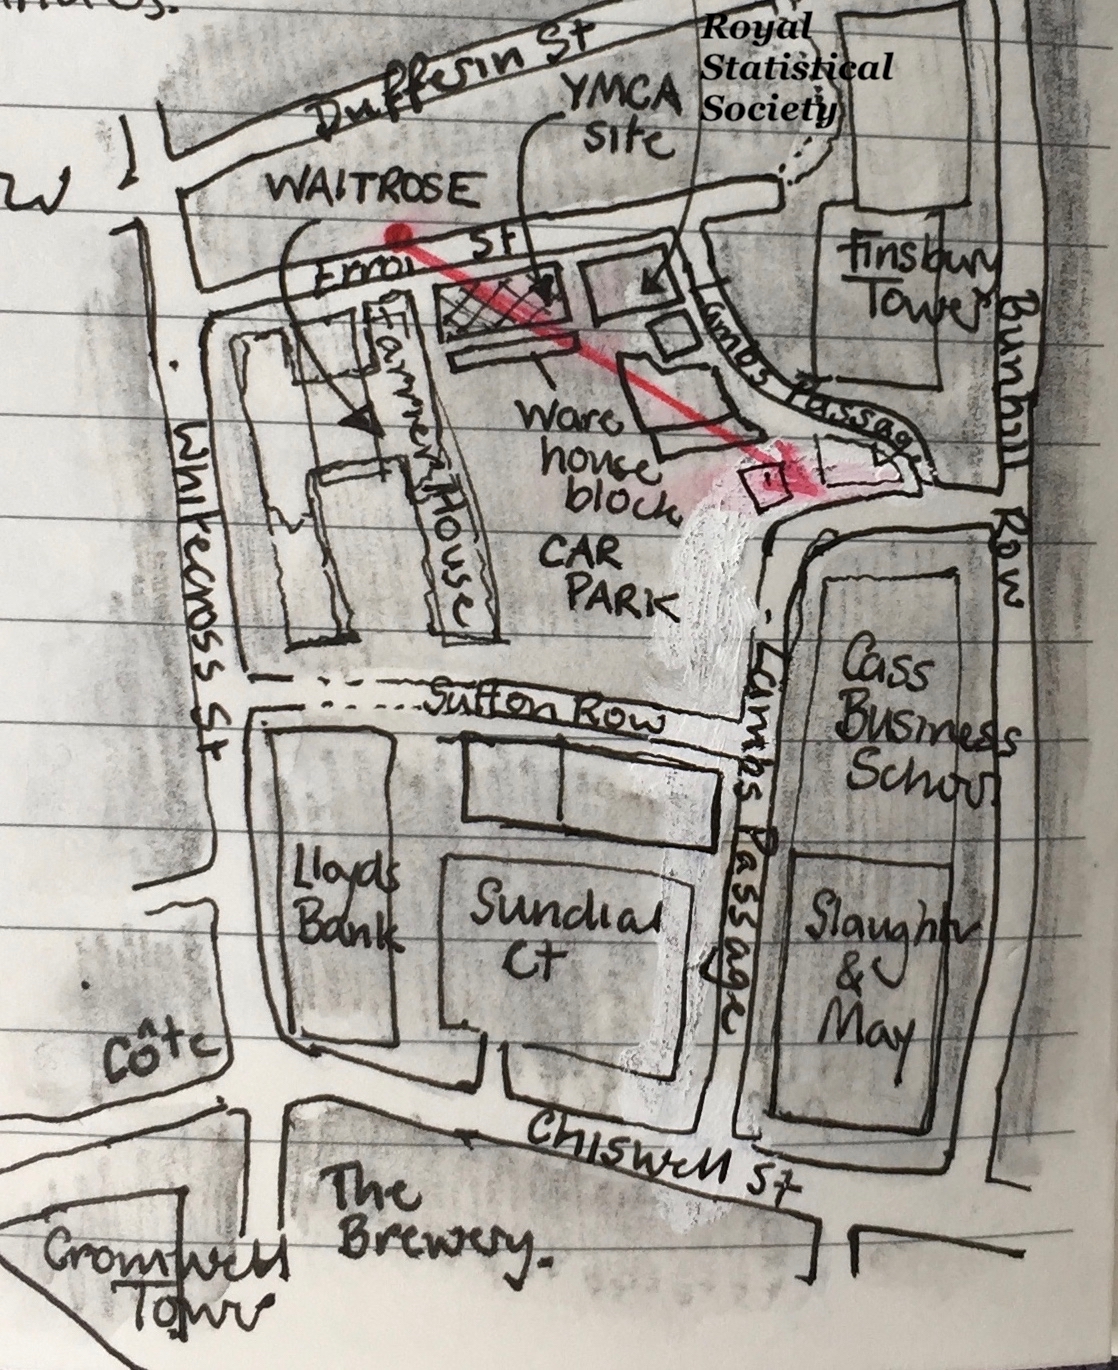 Dufferin St
YMCA
site
Royal
Statistical
Society
WAITROSE
Errol St
Finsbury
Tower
Bunhill Row
Lambs Passage
Whitecross St
House
Ware
house
block
CAR
PARK
Sutton Row
Lambs Passage
Cass
Business
School
Lloyds
Bank
Sundial
Ct
Slaughter
&
May
Côte
Chiswell St
The
Brewery.
Cromwell
Tower